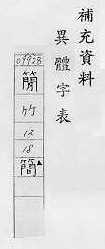 補充資料
異體字表
𥳑
竹
12
18
簡▲